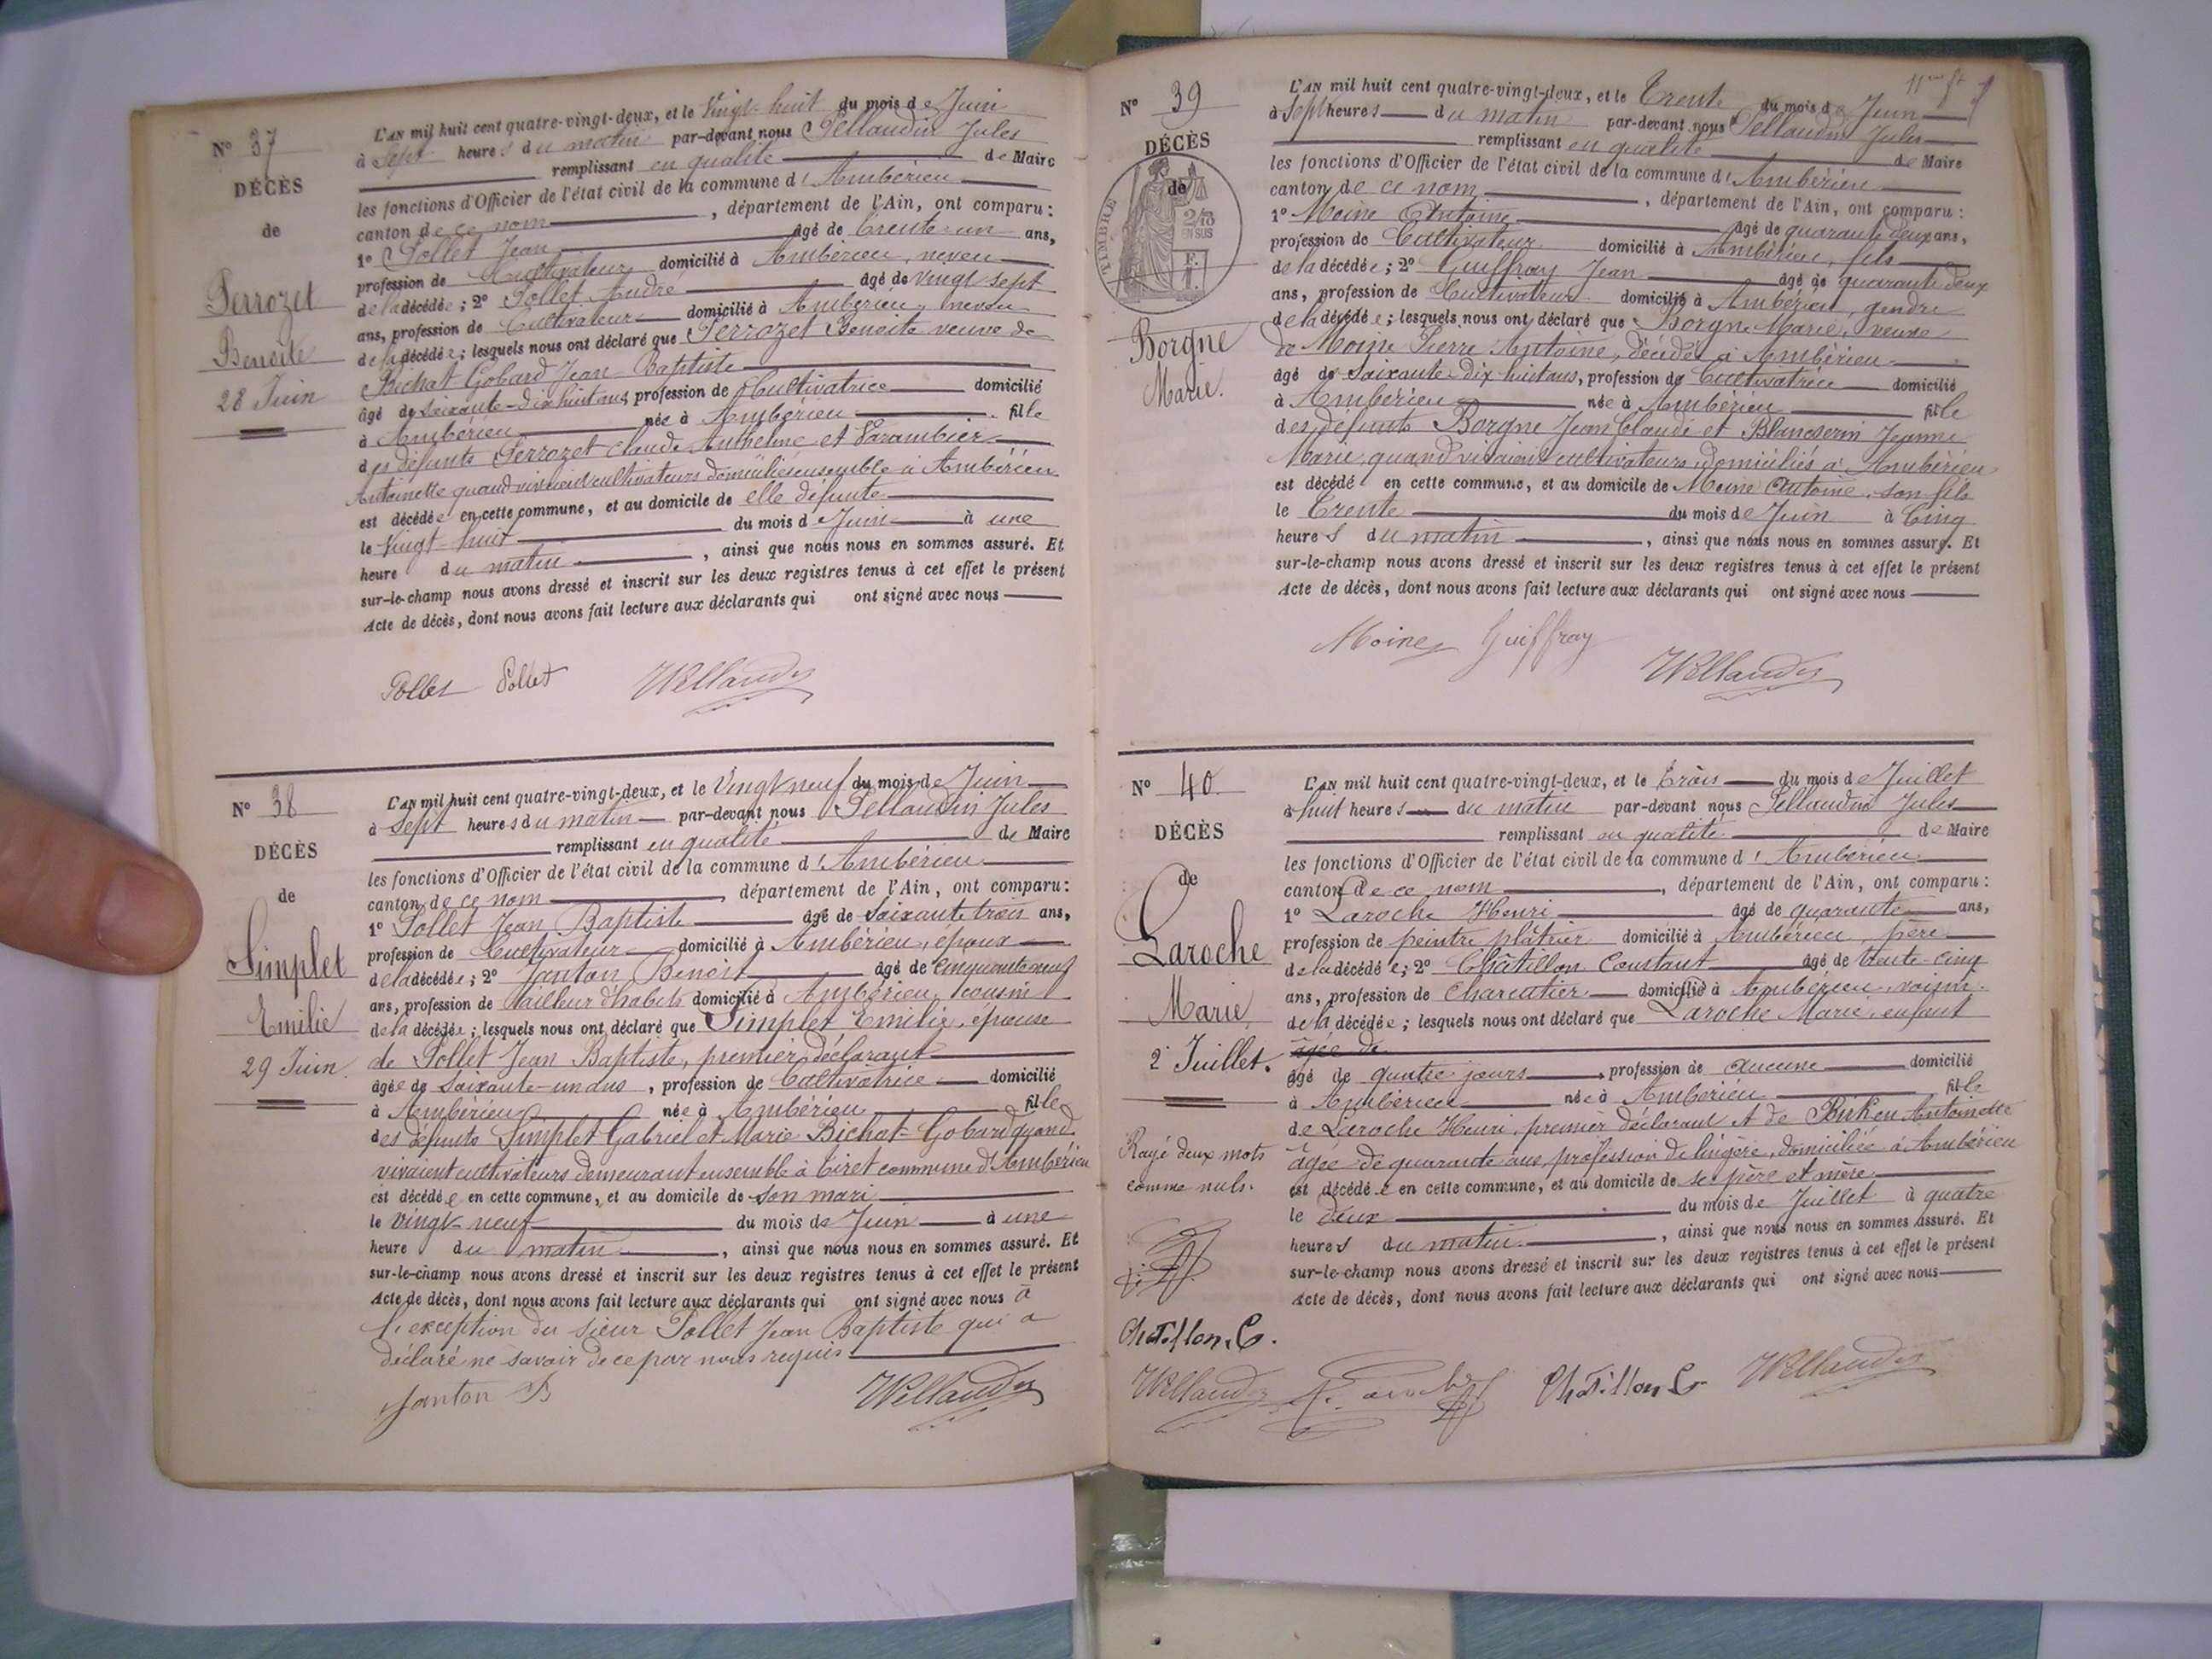 N° 37
DÉCÈS
de
Perrozet
Benoite
28 Juin
L'AN mil huit cent quatre-vingt-deux, et le Vingt-huit du mois de Juin
à Sept heures du matin par-devant nous Pellaudin Jules
remplissant en qualité de Maire
les fonctions d'Officier de l'état civil de la commune d'Ambérieu
canton de ce nom, département de l'Ain, ont comparu:
1° Pollet Jean âgé de trente-un ans,
profession de Cultivateur domicilié à Ambérieu, neveu
de la décédée; 2° Pollet André âgé de vingt sept
ans, profession de Cultivateur domicilié à Ambérieu, neveu
de la décédée; lesquels nous ont déclaré que Perrozet Benoite veuve de
Bichat-Gobard Jean-Baptiste
âgé de soixante-dix huit ans, profession de Cultivatrice domicilié
à Ambérieu née à Ambérieu fille
des défunts Perrozet Claude Anthelme et Varambier
Antoinette quand vivaient cultivateurs domiciliés ensemble à Ambérieu
est décédée en cette commune, et au domicile de elle défunte
le vingt-huit du mois de Juin à une
heure du matin, ainsi que nous nous en sommes assuré. Et
sur-le-champ nous avons dressé et inscrit sur les deux registres tenus à cet effet le présent
Acte de décès, dont nous avons fait lecture aux déclarants qui ont signé avec nous
Pollet Pollet
N° 38
DÉCÈS
de
Simplet
Emilie
29 Juin.
L'AN mil huit cent quatre-vingt-deux, et le Vingt neuf du mois de Juin
à Sept heures du matin par-devant nous Pellaudin Jules
remplissant en qualité de Maire
les fonctions d'Officier de l'état civil de la commune d'Ambérieu
canton de ce nom, département de l'Ain, ont comparu:
1° Pollet Jean Baptiste âgé de Soixante trois ans,
profession de Cultivateur domicilié à Ambérieu, époux
de la décédée; 2° Janton Benoit âgé de cinquante neuf
ans, profession de tailleur d'habits domicilié à Ambérieu, cousin
de la décédée; lesquels nous ont déclaré que Simplet Emilie, épouse
de Pollet Jean Baptiste, premier déclarant
âgée de Soixante-un ans, profession de Cultivatrice domicilié
à Ambérieu née à Ambérieu fille
des défunts Simplet Gabriel et Marie Bichat-Gobard quand
vivaient cultivateurs demeurant ensemble à Tiret commune d'Ambérieu
est décédée en cette commune, et au domicile de son mari
le vingt-neuf du mois de Juin à une
heure du matin, ainsi que nous nous en sommes assuré. Et
sur-le-champ nous avons dressé et inscrit sur les deux registres tenus à cet effet le présent
Acte de décès, dont nous avons fait lecture aux déclarants qui ont signé avec nous à
l'exception du sieur Pollet Jean Baptiste qui a
déclaré ne savoir de ce par nous requis
Janton B
N° 39
DÉCÈS
de
TIMBRE
2/10
EN SUS
Borgne
Marie.
L'AN mil huit cent quatre-vingt-deux, et le Trente du mois de Juin
à Sept heures du matin par-devant nous Pellaudin Jules
remplissant en qualité de Maire
les fonctions d'Officier de l'état civil de la commune d'Ambérieu
canton de ce nom, département de l'Ain, ont comparu:
1° Moine Antoine âgé de quarante deux ans,
profession de Cultivateur domicilié à Ambérieu, fils
de la décédée; 2° Guiffray Jean âgé de quarante deux
ans, profession de Cultivateur domicilié à Ambérieu, gendre
de la décédée; lesquels nous ont déclaré que Borgne Marie, veuve
de Moine Pierre Antoine, décédée à Ambérieu
âgé de Soixante-dix huit ans, profession de Cultivatrice domicilié
à Ambérieu née à Ambérieu fille
des défunts Borgne Jean Claude et Blancserin Jeanne
Marie quand vivaient cultivateurs domiciliés à Ambérieu
est décédé en cette commune, et au domicile de Moine Antoine, son fils
le Trente du mois de Juin à Cinq
heures du matin, ainsi que nous nous en sommes assuré. Et
sur-le-champ nous avons dressé et inscrit sur les deux registres tenus à cet effet le présent
Acte de décès, dont nous avons fait lecture aux déclarants qui ont signé avec nous
Moine Guiffray
N° 40.
DÉCÈS
de
Laroche
Marie
2 Juillet.
Rayé deux mots
comme nuls.
Chatillon. C.
L'AN mil huit cent quatre-vingt-deux, et le trois du mois de Juillet
à huit heures du matin par-devant nous Pellaudin Jules
remplissant en qualité de Maire
les fonctions d'Officier de l'état civil de la commune d'Ambérieu
canton de ce nom, département de l'Ain, ont comparu:
1° Laroche Henri âgé de quarante ans,
profession de peintre plâtrier domicilié à Ambérieu, père
de la décédée; 2° Châtillon Constant âgé de trente-cinq
ans, profession de Charcutier domicilié à Ambérieu, voisin
de la décédée; lesquels nous ont déclaré que Laroche Marie, enfant
âgée de
âgé de quatre jours, profession de aucune domicilié
à Ambérieu née à Ambérieu fille
de Laroche Henri, premier déclarant et de Antoinette
âgée de quarante ans, profession de lingère, domiciliée à Ambérieu
est décédée en cette commune, et au domicile de ses père et mère
le deux du mois de Juillet à quatre
heures du matin, ainsi que nous nous en sommes assuré. Et
sur-le-champ nous avons dressé et inscrit sur les deux registres tenus à cet effet le présent
Acte de décès, dont nous avons fait lecture aux déclarants qui ont signé avec nous
Chatillon C